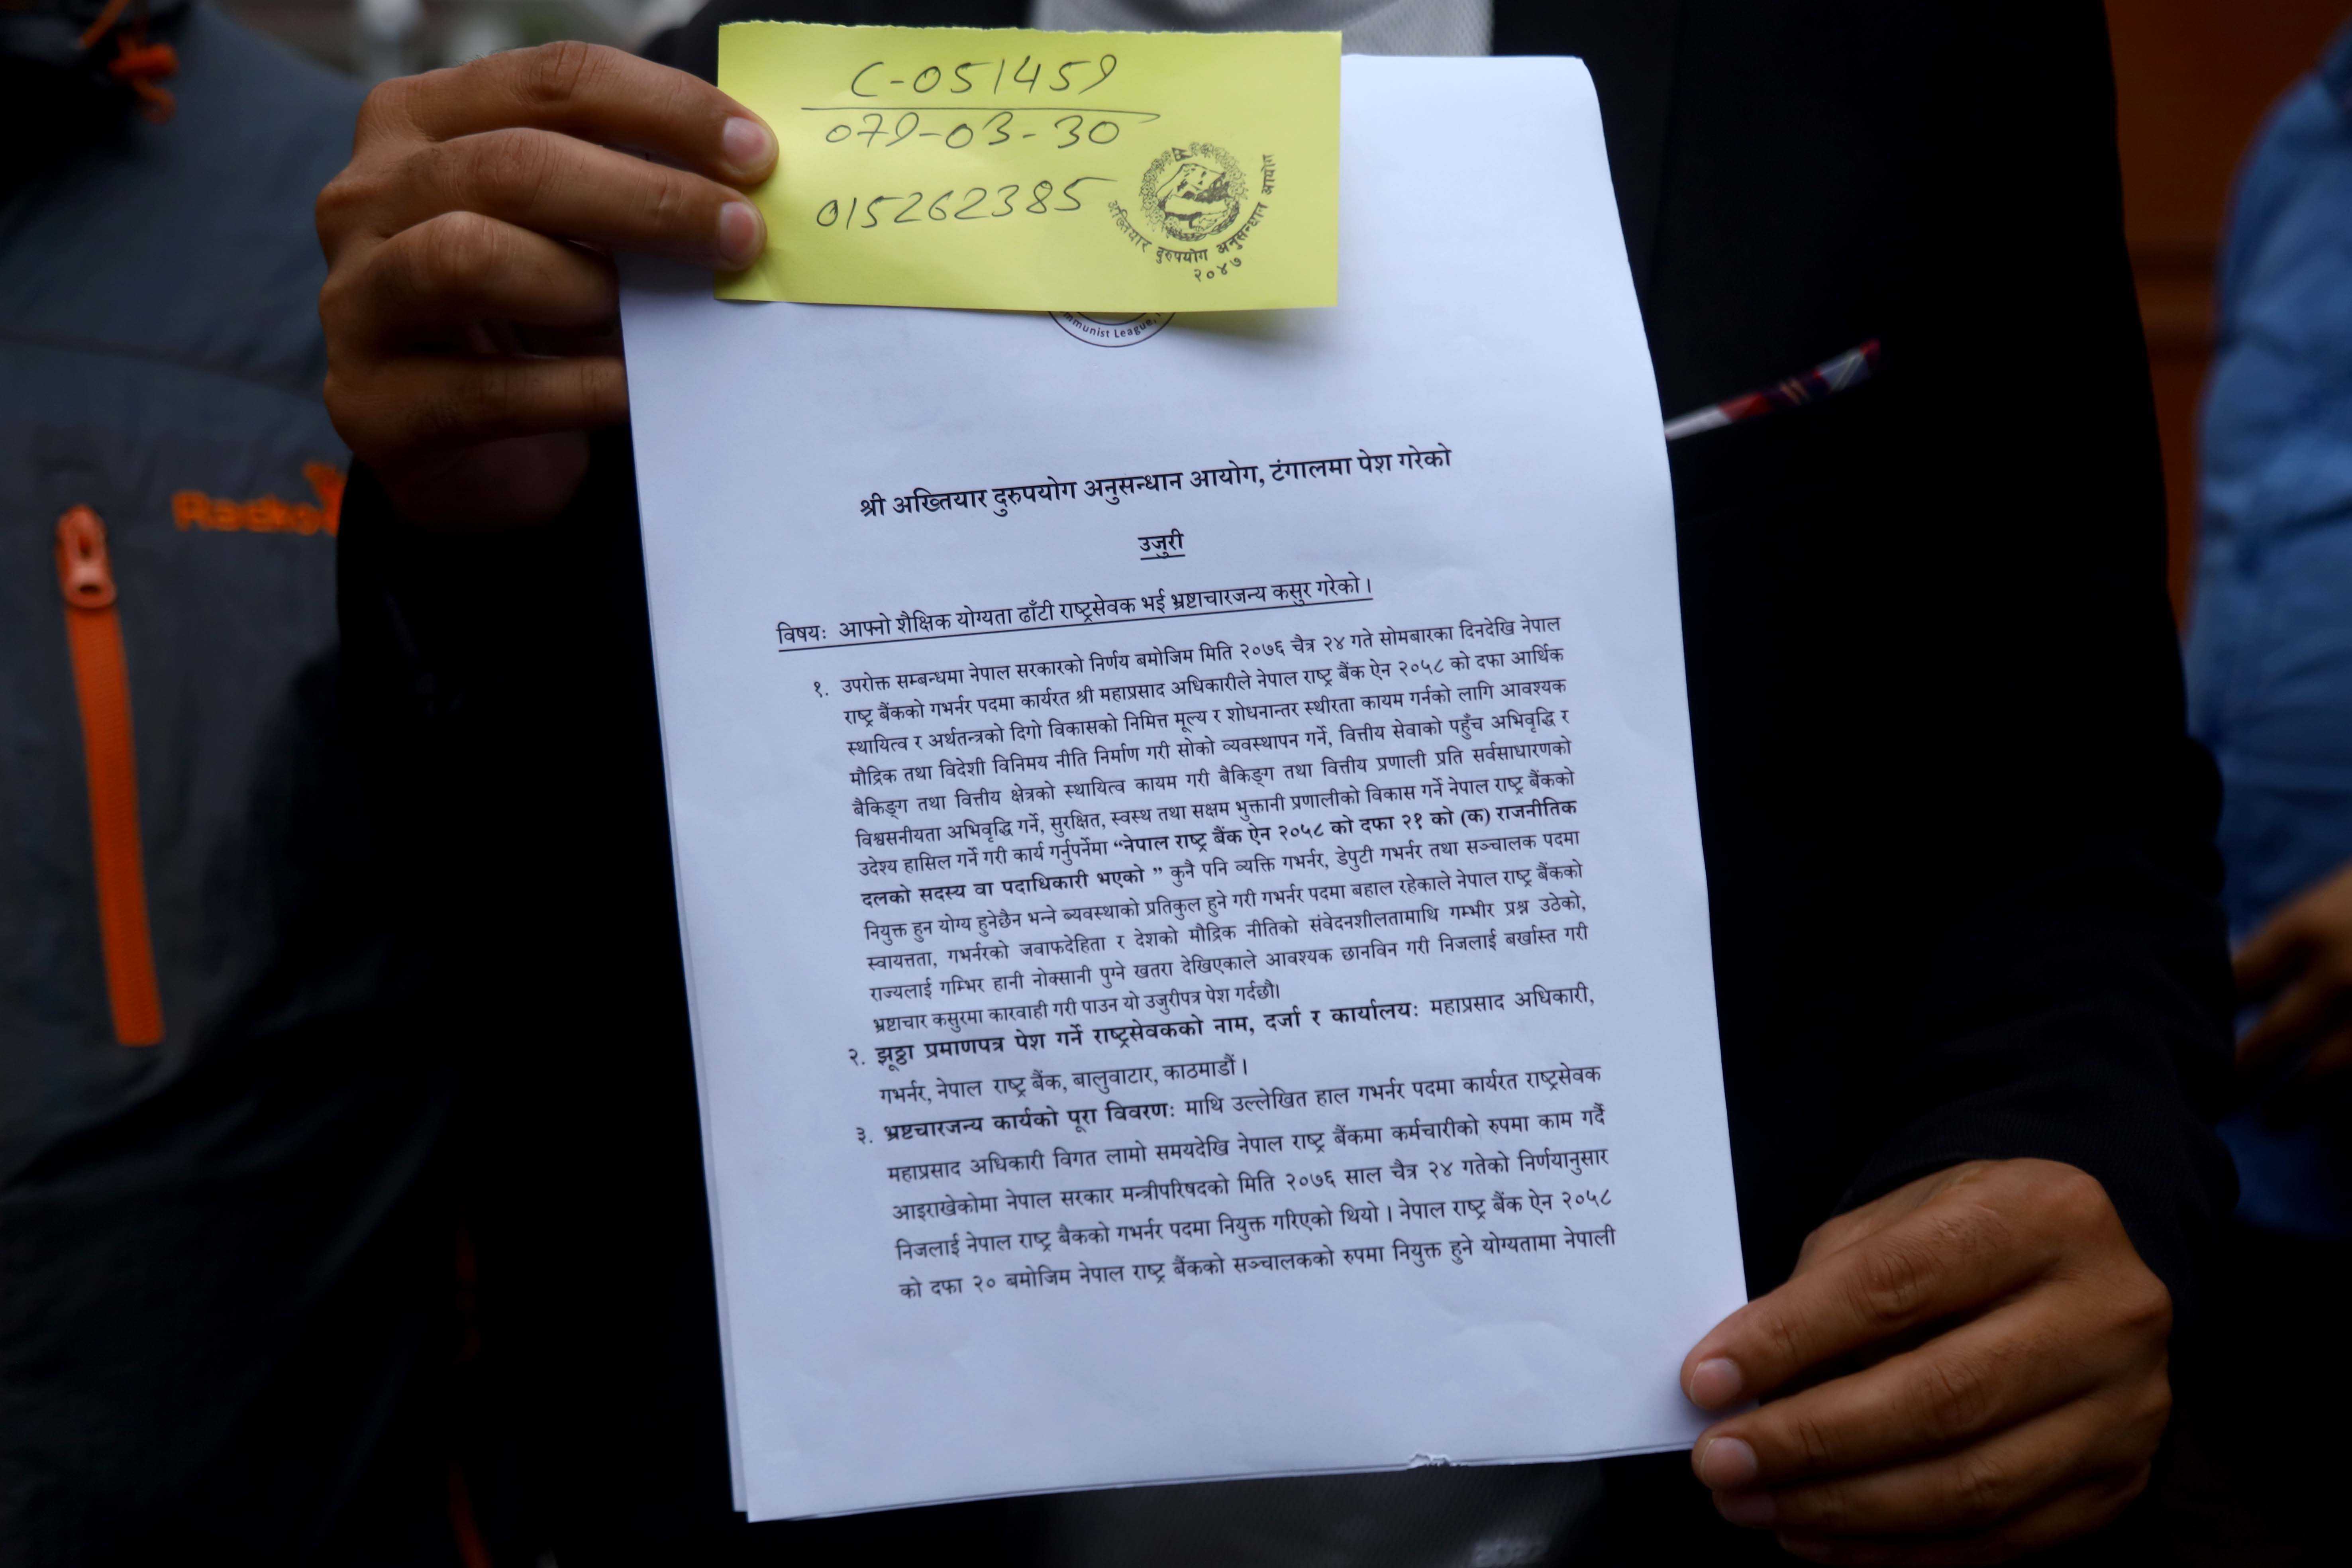 C-051459
079-03-30
015262385
अख्तियार दुरुपयोग अनुसन्धान आयोग
२०४७
mmunist League,
श्री अख्तियार दुरुपयोग अनुसन्धान आयोग, टंगालमा पेश गरेको
उजुरी
विषयः आफ्नो शैक्षिक योग्यता ढाँटी राष्ट्रसेवक भई भ्रष्टाचारजन्य कसुर गरेको ।
१. उपरोक्त सम्बन्धमा नेपाल सरकारको निर्णय बमोजिम मिति २०७६ चैत्र २४ गते सोमबारका दिनदेखि नेपाल
राष्ट्र बैंकको गभर्नर पदमा कार्यरत श्री महाप्रसाद अधिकारीले नेपाल राष्ट्र बैंक ऐन २०५८ को दफा आर्थिक
स्थायित्व र अर्थतन्त्रको दिगो विकासको निमित्त मूल्य र शोधनान्तर स्थीरता कायम गर्नको लागि आवश्यक
मौद्रिक तथा विदेशी विनिमय नीति निर्माण गरी सोको व्यवस्थापन गर्ने, वित्तीय सेवाको पहुँच अभिवृद्धि र
बैकिङ्ग तथा वित्तीय क्षेत्रको स्थायित्व कायम गरी बैकिङ्ग तथा वित्तीय प्रणाली प्रति सर्वसाधारणको
विश्वसनीयता अभिवृद्धि गर्ने, सुरक्षित, स्वस्थ तथा सक्षम भुक्तानी प्रणालीको विकास गर्ने नेपाल राष्ट्र बैंकको
उदेश्य हासिल गर्ने गरी कार्य गर्नुपर्नेमा “नेपाल राष्ट्र बैंक ऐन २०५८ को दफा २१ को (क) राजनीतिक
दलको सदस्य वा पदाधिकारी भएको ” कुनै पनि व्यक्ति गभर्नर, डेपुटी गभर्नर तथा सञ्चालक पदमा
नियुक्त हुन योग्य हुनेछैन भन्ने ब्यवस्थाको प्रतिकुल हुने गरी गभर्नर पदमा बहाल रहेकाले नेपाल राष्ट्र बैंकको
स्वायत्तता, गभर्नरको जवाफदेहिता र देशको मौद्रिक नीतिको संवेदनशीलतामाथि गम्भीर प्रश्न उठेको,
राज्यलाई गम्भिर हानी नोक्सानी पुग्ने खतरा देखिएकाले आवश्यक छानविन गरी निजलाई बर्खास्त गरी
भ्रष्टाचार कसुरमा कारवाही गरी पाउन यो उजुरीपत्र पेश गर्दछौ।
२. झूठ्ठा प्रमाणपत्र पेश गर्ने राष्ट्रसेवकको नाम, दर्जा र कार्यालयः महाप्रसाद अधिकारी,
गभर्नर, नेपाल राष्ट्र बैंक, बालुवाटार, काठमाडौं ।
३. भ्रष्टचारजन्य कार्यको पूरा विवरणः माथि उल्लेखित हाल गभर्नर पदमा कार्यरत राष्ट्रसेवक
महाप्रसाद अधिकारी विगत लामो समयदेखि नेपाल राष्ट्र बैंकमा कर्मचारीको रुपमा काम गर्दै
आइराखेकोमा नेपाल सरकार मन्त्रीपरिषदको मिति २०७६ साल चैत्र २४ गतेको निर्णयानुसार
निजलाई नेपाल राष्ट्र बैकको गभर्नर पदमा नियुक्त गरिएको थियो । नेपाल राष्ट्र बैंक ऐन २०५८
को दफा २० बमोजिम नेपाल राष्ट्र बैंकको सञ्चालकको रुपमा नियुक्त हुने योग्यतामा नेपाली